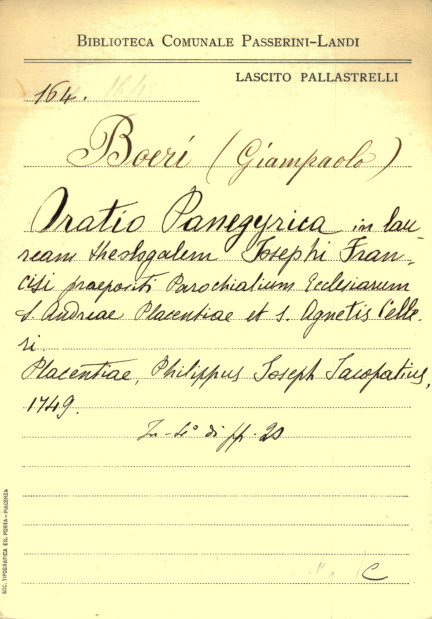 BIBLIOTECA COMUNALE PASSERINI-LANDI
LASCITO PALLASTRELLI
164.
Boeri (Giampaolo)
Oratio Panegyrica in lau-
ream theologalem Josephi Fran-
cisi praepositi Parochialium Ecclesiarum
S. Andreae Placentiae et S. Agnetis Celle-
ri.
Placentiae, Philippus Joseph Jacopatius,
1749.
In-4° di pp. 20
C
SOC. TIPOGRAFICA ED. PORTA - PIACENZA